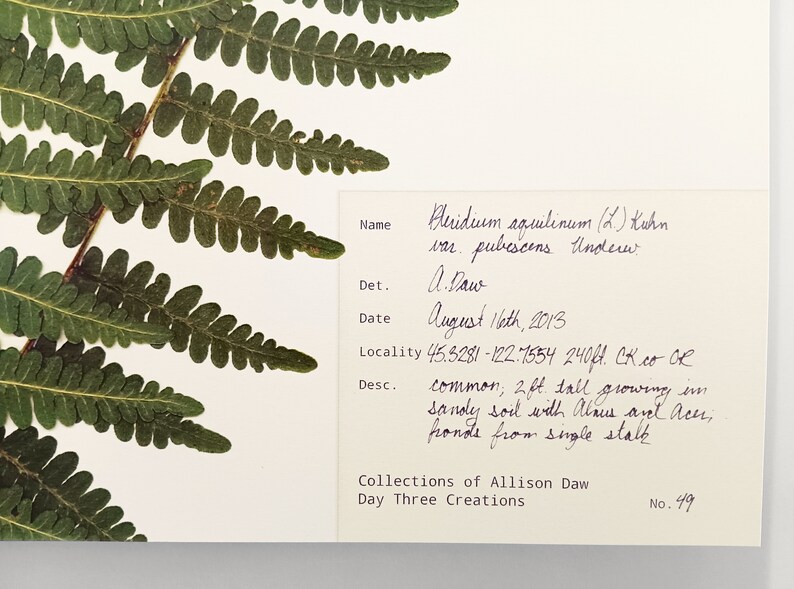 Name Pteridium aquilinum (L.) Kuhn
var. pubescens Underw.
Det. A. Daw
Date August 16th, 2013
Locality 45.3281 -122.7554 240ft. CK co OR
Desc. common; 2 ft. tall growing in
sandy soil with Alnus and Acer;
fronds from single stalk
Collections of Allison Daw
Day Three Creations
No. 49